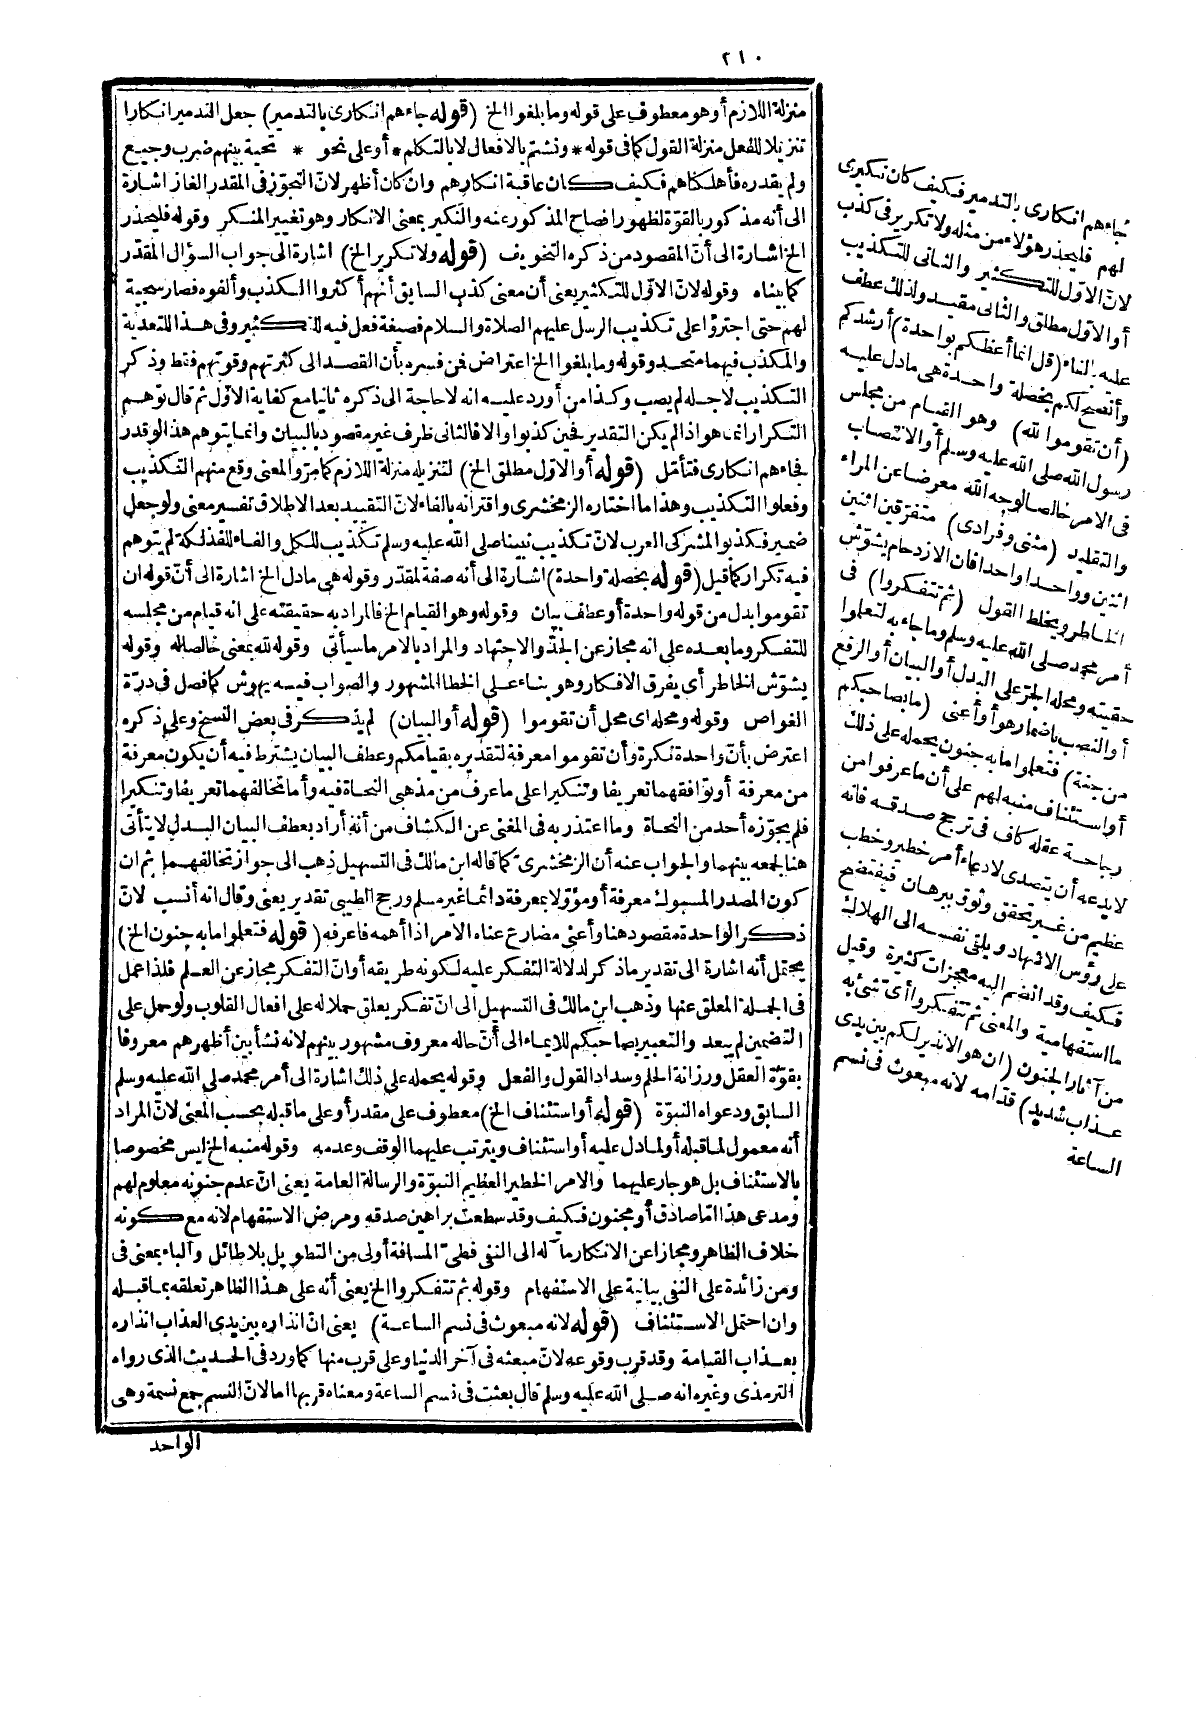 ٢١٠
منزلة اللازم أو هو معطوف على قوله وما بلغوا الخ (قوله جاءهم انكارى بالتدمير) جعل التدمير انكارا
تنزيلا للفعل منزلة القول كما فى قوله * ونشتم بالافعال لا بالتكلم * أو على نحو * تحية بينهم ضرب وجيع
ولم يقدره فأهلكناهم فكيف كان عاقبة انكارهم وان كان أظهر لانّ التجوّز فى المقدر الغاز اشارة
الى أنه مذكور بالقوّة لظهور افصاح المذكور عنه والنكير بمعنى الانكار وهو تغيير المنكر وقوله فليحذر
الخ اشارة الى أنّ المقصود من ذكره التخويف (قوله ولا تكرير الخ) اشارة الى جواب السؤال المقدّر
كما بيناه وقوله لانّ الاوّل للتكثير يعنى أن معنى كذب السابق أنهم أكثروا الكذب وألفوه فصار سجية
لهم حتى اجترؤا على تكذيب الرسل عليهم الصلاة والسلام فصيغة فعل فيه للتكثير وفى هذا للتعدية
والمكذب فيهما متحد وقوله وما بلغوا الخ اعتراض فمن فسره بأن القصد الى كثرتهم وقوتهم فقط وذكر
التكذيب لاجله لم يصب وكذا من أورد عليه انه لا حاجة الى ذكره ثانيا مع كفاية الاوّل ثم قال توهم
التكرار انما هو اذا لم يكن التقدير فحين كذبوا والا فالثانى ظرف غير مقصود بالبيان وانما يتوهم هذا لو قدر
فجاءهم انكارى فتأمّل (قوله أو الاوّل مطلق الخ) لتنزيله منزلة اللازم كما مرّ والمعنى وقع منهم التكذيب
وفعلوا التكذيب وهذا ما اختاره الزمخشرى واقترانه بالفاء لانّ التقييد بعد الاطلاق تفسير معنى ولو جعل
ضمير فكذبوا لمشركى العرب لانّ تكذيب نبينا صلى الله عليه وسلم تكذيب للكل والفاء للفذلكة لم يتوهم
فيه تكرار كما قيل (قوله بخصلة واحدة) اشارة الى أنه صفة لمقدّر وقوله هى ما دل الخ اشارة الى أنّ قوله ان
تقوموا بدل من قوله واحدة أو عطف بيان وقوله وهو القيام الخ فالمراد به حقيقته على انه قيام من مجلسه
للتفكر وما بعده على انه مجاز عن الجدّ والاجتهاد والمراد بالامر ما سيأتى وقوله لله بمعنى خالصا له وقوله
يشوّش الخاطر أى يفرق الافكار وهو بناء على الخطا المشهور والصواب فيه يهوش كما فصل فى درّة
الغواص وقوله ومحله اى محل أن تقوموا (قوله أو البيان) لم يذكر فى بعض النسخ وعلى ذكره
اعترض بأنّ واحدة نكرة وأن تقوموا معرفة لتقديره بقيامكم وعطف البيان يشترط فيه أن يكون معرفة
من معرفة أو توافقهما تعريفا وتنكيرا على ما عرف من مذهبى النحاة فيه وأما تخالفهما تعريفا وتنكيرا
فلم يجوّزه أحد من النحاة وما اعتذر به فى المغنى عن الكشاف من أنه أراد بعطف البيان البدل لا يتأتى
هنا لجمعه بينهما والجواب عنه أن الزمخشرىّ كما قاله ابن مالك فى التسهيل ذهب الى جواز تخالفهما ثم ان
كون المصدر المسبوك معرفة أو مؤوّلا بمعرفة دائما غير مسلم ورجح الطيبى تقدير يعنى وقال انه أنسب لانّ
ذكر الواحدة مقصود هنا وأعنى مضارع عناه الامر اذا أهمه فاعرفه (قوله فتعلموا ما به جنون الخ)
يحتمل أنه اشارة الى تقدير ما ذكر لدلالة التفكر عليه لكونه طريقه أو انّ التفكر مجاز عن العلم فلذا عمل
فى الجملة المعلق عنها وذهب ابن مالك فى التسهيل الى انّ تفكر يعلق حملا له على افعال القلوب ولو حمل على
التضمين لم يبعد والتعبير بصاحبكم للايماء الى أنّ حاله معروف مشهور بينهم لانه نشأ بين أظهرهم معروفا
بقوّة العقل ورزانة الحلم وسداد القول والفعل وقوله يحمله على ذلك اشارة الى أمر محمد صلى الله عليه وسلم
السابق ودعواه النبوّة (قوله أو استئناف الخ) معطوف على مقدر أو على ما قبله بحسب المعنى لانّ المراد
أنه معمول لما قبله أو لما دل عليه أو استئناف ويترتب عليهما الوقف وعدمه وقوله منبه الخ ليس مخصوصا
بالاستئناف بل هو جار عليهما والامر الخطير العظيم النبوّة والرسالة العامة يعنى انّ عدم جنونه معلوم لهم
ومدعى هذا امّا صادق أو مجنون فكيف وقد سطعت براهين صدقه ومرض الاستفهام لانه مع كونه
خلاف الظاهر ومجازا عن الانكار مآله الى النفى فطىّ المسافة أولى من التطويل بلا طائل والباء بمعنى فى
ومن زائدة على النفى بيانية على الاستفهام وقوله ثم تتفكروا الخ يعنى أنه على هذا الظاهر تعلقه بما قبله
وان احتمل الاستئناف (قوله لانه مبعوث فى نسم الساعة) يعنى انّ انذاره بين يدى العذاب انذاره
بعذاب القيامة وقد قرب وقوعه لانّ مبعثه فى آخر الدنيا وعلى قرب منها كما ورد فى الحديث الذى رواه
الترمذى وغيره انه صلى الله عليه وسلم قال بعثت فى نسم الساعة ومعناه قربها امالانّ النسم جمع نسمة وهى
الواحد
فجاءهم انكارى بالتدمير فكيف كان نكيرى
لهم فليحذر هؤلاء من مثله ولا تكرير فى كذب
لانّ الاوّل للتكثير والثانى للتكذيب
أو الاوّل مطلق والثانى مقيد ولذلك عطف
عليه بالفاء (قل انما أعظكم بواحدة) أرشدكم
وأنصح لكم بخصلة واحدة هى ما دل عليه
(أن تقوموا لله) وهو القيام من مجلس
رسول الله صلى الله عليه وسلم أو الانتصاب
فى الامر خالصا لوجه الله معرضا عن المراء
والتقليد (مثنى وفرادى) متفرّقين اثنين
اثنين وواحدا واحدا فان الازدحام يشوّش
الخاطر ويخلط القول (ثم تتفكروا) فى
أمر محمد صلى الله عليه وسلم وما جاء به لتعلموا
حقيته ومحله الجرّ على البدل أو البيان أو الرفع
أو النصب باضمار هو أو أعنى (ما بصاحبكم
من جنة) فتعلموا ما به جنون يحمله على ذلك
أو استئناف منبه لهم على أن ما عرفوا من
رجاحة عقله كاف فى ترجح صدقه فانه
لا يدعه أن يتصدى لادعاء أمر خطير وخطب
عظيم من غير تحقق ووثوق ببرهان فيفتضح
على رؤس الاشهاد ويلقى نفسه الى الهلاك
فكيف وقد انضم اليه معجزات كثيرة وقيل
ما استفهامية والمعنى ثم تتفكروا أى شئ به
من آثار الجنون (ان هو الا نذير لكم بين يدى
عذاب شديد) قدّامه لانه مبعوث فى نسم
الساعة